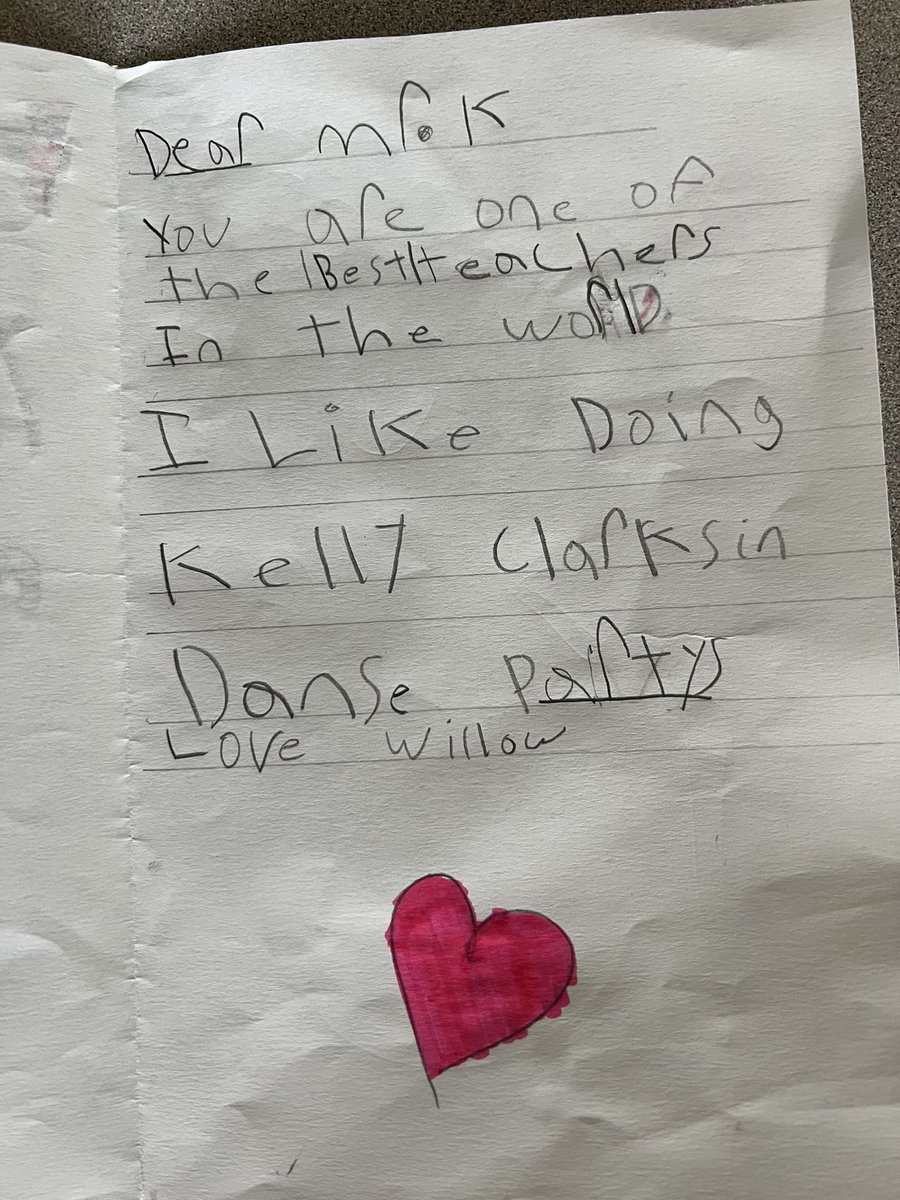 Dear Mr. K
You are one of
the |Best| teachers
In the world.
I Like Doing
Kelly Clarksin
Danse Partys
Love Willow